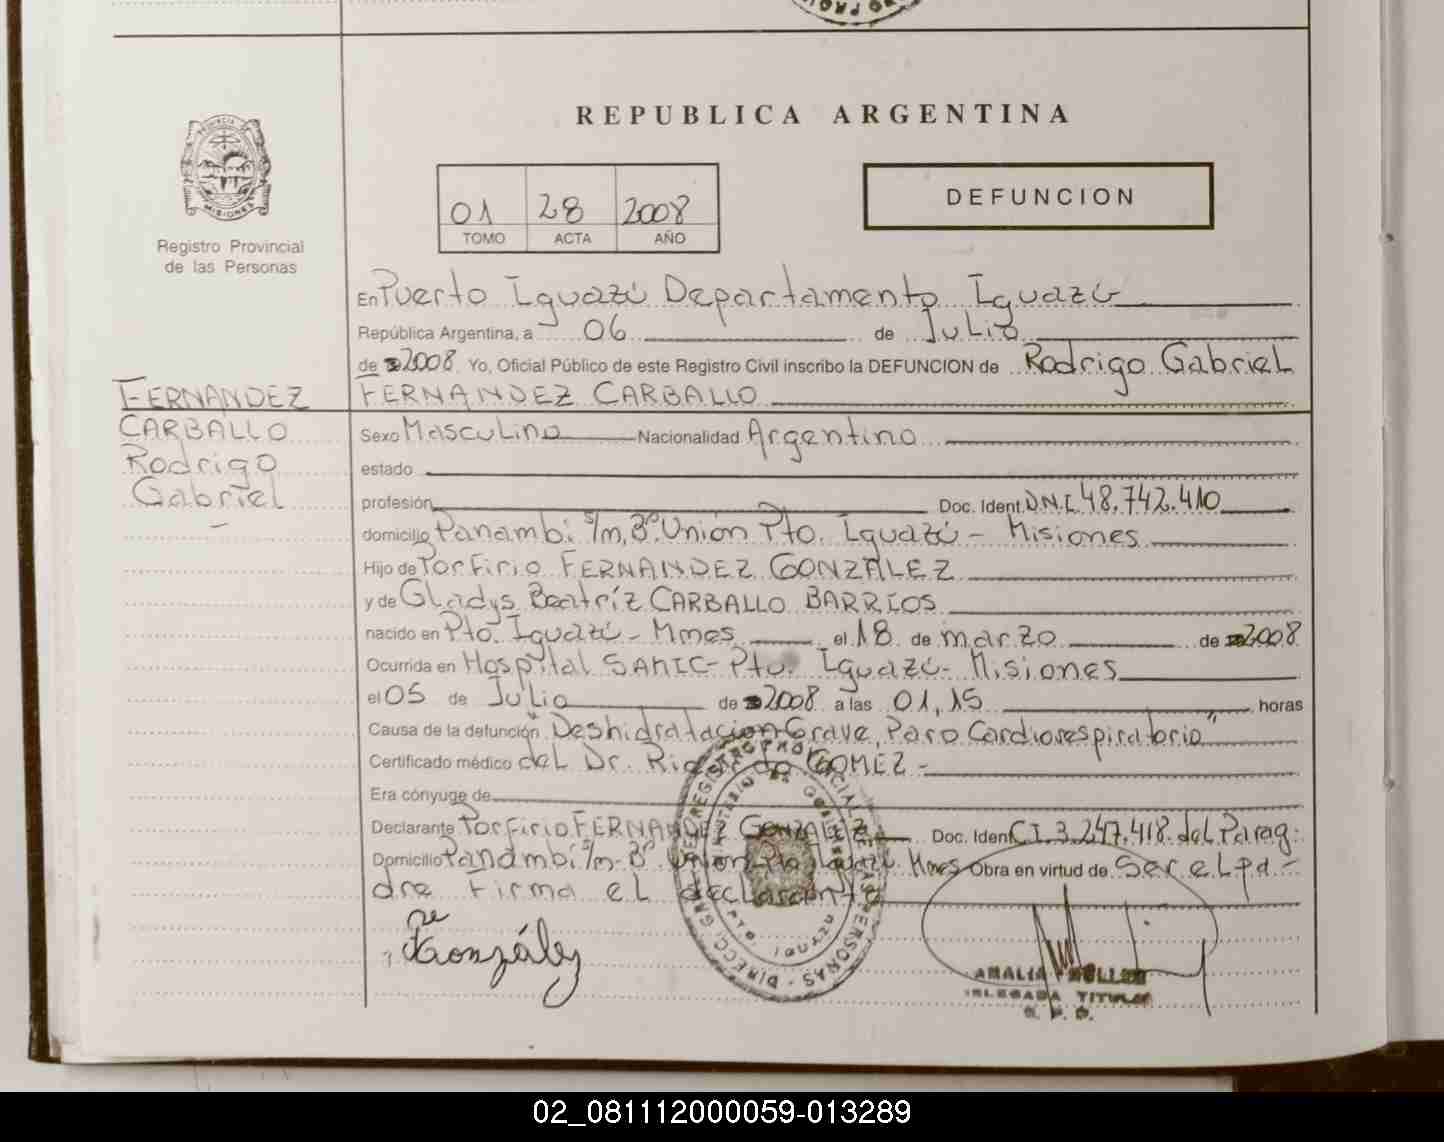 REPUBLICA ARGENTINA
PROVINCIA
MISIONES
Registro Provincial
de las Personas
01 28 2008
TOMO ACTA AÑO
DEFUNCION
En Puerto Iguazú Departamento Iguazú
República Argentina, a 06 de Julio
de 2008 Yo, Oficial Público de este Registro Civil inscribo la DEFUNCION de Rodrigo Gabriel
FERNANDEZ CARBALLO
FERNANDEZ
CARBALLO
Rodrigo
Gabriel
Sexo Masculino Nacionalidad Argentino
estado
profesión Doc. Ident. D.N.I. 48.742.410
domicilio Panambi s/n, Bº. Unión Pto. Iguazú - Misiones
Hijo de Porfirio FERNANDEZ GONZALEZ
y de Gladys Beatríz CARBALLO BARRIOS
nacido en Pto. Iguazú - Mnes el 18 de marzo de 2008
Ocurrida en Hospital SAMIC - Pto. Iguazú - Misiones
el 05 de Julio de 2008 a las 01,15 horas
Causa de la defunción "Deshidratacion Grave, Paro Cardiorespiratorio"
Certificado médico del Dr. Ricardo GOMEZ -
Era cónyuge de
Declarante Porfirio FERNANDEZ GONZALEZ Doc. Ident. C.I. 3.247.418 del Parag.
Domicilio Panambi s/n - Bº Unión Pto Iguazú. Mnes Obra en virtud de Ser el pa-
dre Firma el declarante
González
REGISTRO PROVINCIAL DE LAS PERSONAS - DIRECC. GRAL.
PTO. IGUAZU
AMALIA MULLER
DELEGADA TITULAR
R. P. P.
02_081112000059-013289